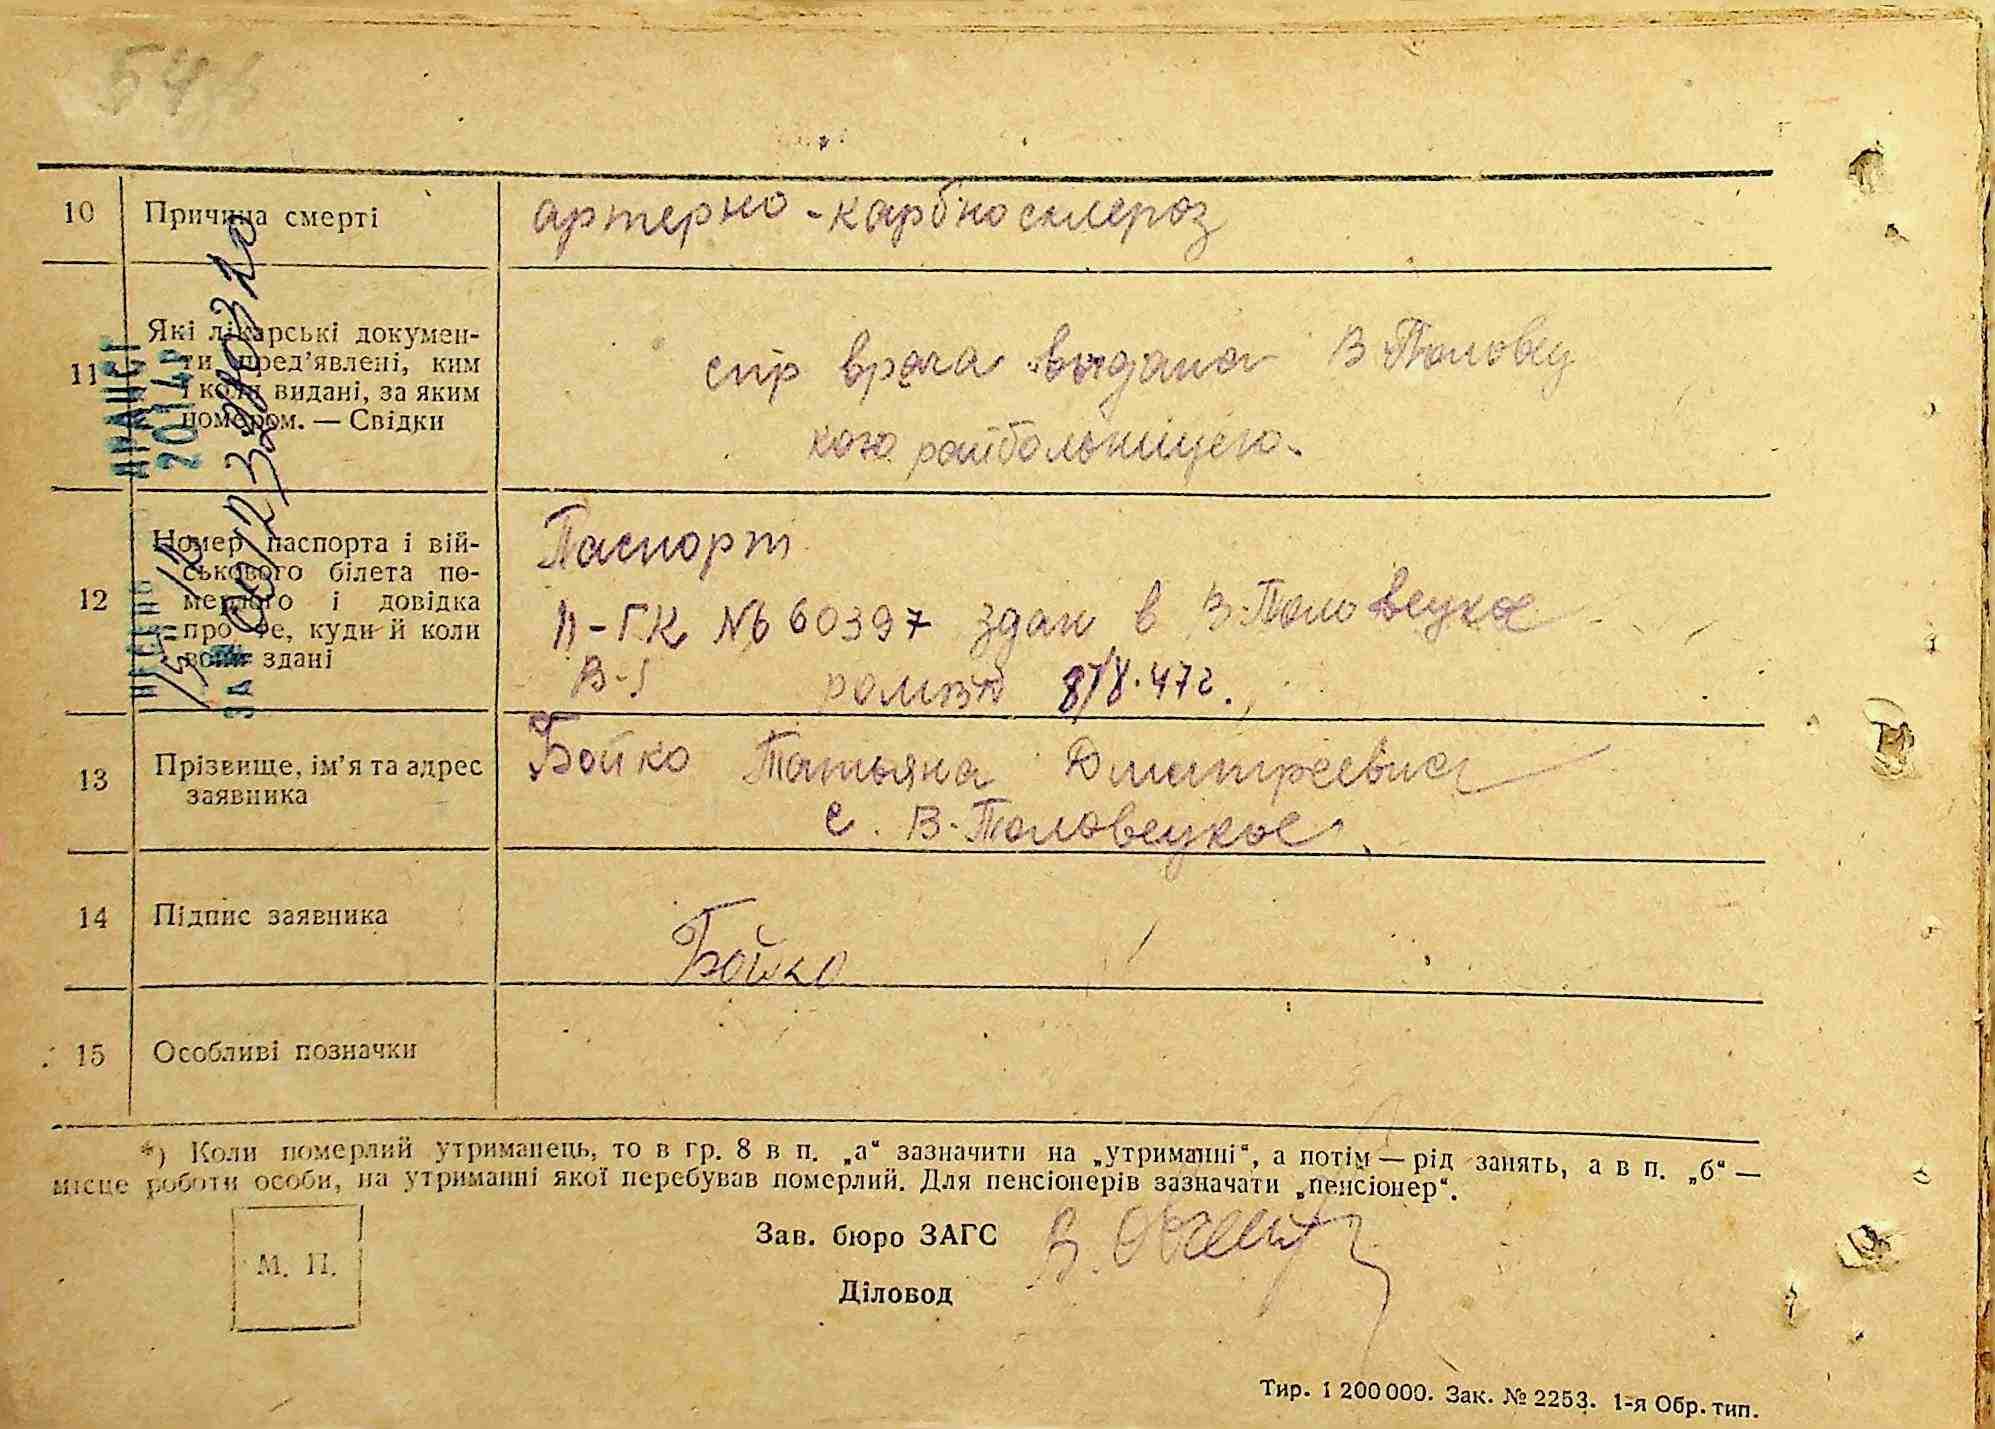 54
10 Причина смерті артерно-карбносклероз
11 Які лікарські докумен-
ти пред'явлені, ким
і коли видані, за яким
номером. — Свідки
спр врача выдана В Половец
кою райбольницею.
12 Номер паспорта і вій-
ськового білета по-
мерлого і довідка
про те, куди й коли
вони здані
Паспорт
II-ГК № 660397 здан в В-Половецкое
8/X-47г.
13 Прізвище, ім'я та адрес
заявника
Бойко Татьяна Дматреевна
с. В-Половецкое
14 Підпис заявника Бойко
15 Особливі позначки
ВНЕСЕНО
ДРАЦСГ
2014р
ЗА №
00123280320
*) Коли померлий утриманець, то в гр. 8 в п. „а“ зазначити на „утриманні“, а потім — рід занять, а в п. „б“ —
місце роботи особи, на утриманні якої перебував померлий. Для пенсіонерів зазначати „пенсіонер“.
М. П.
Зав. бюро ЗАГС
Діловод
Тир. 1 200 000. Зак. № 2253. 1-я Обр. тип.